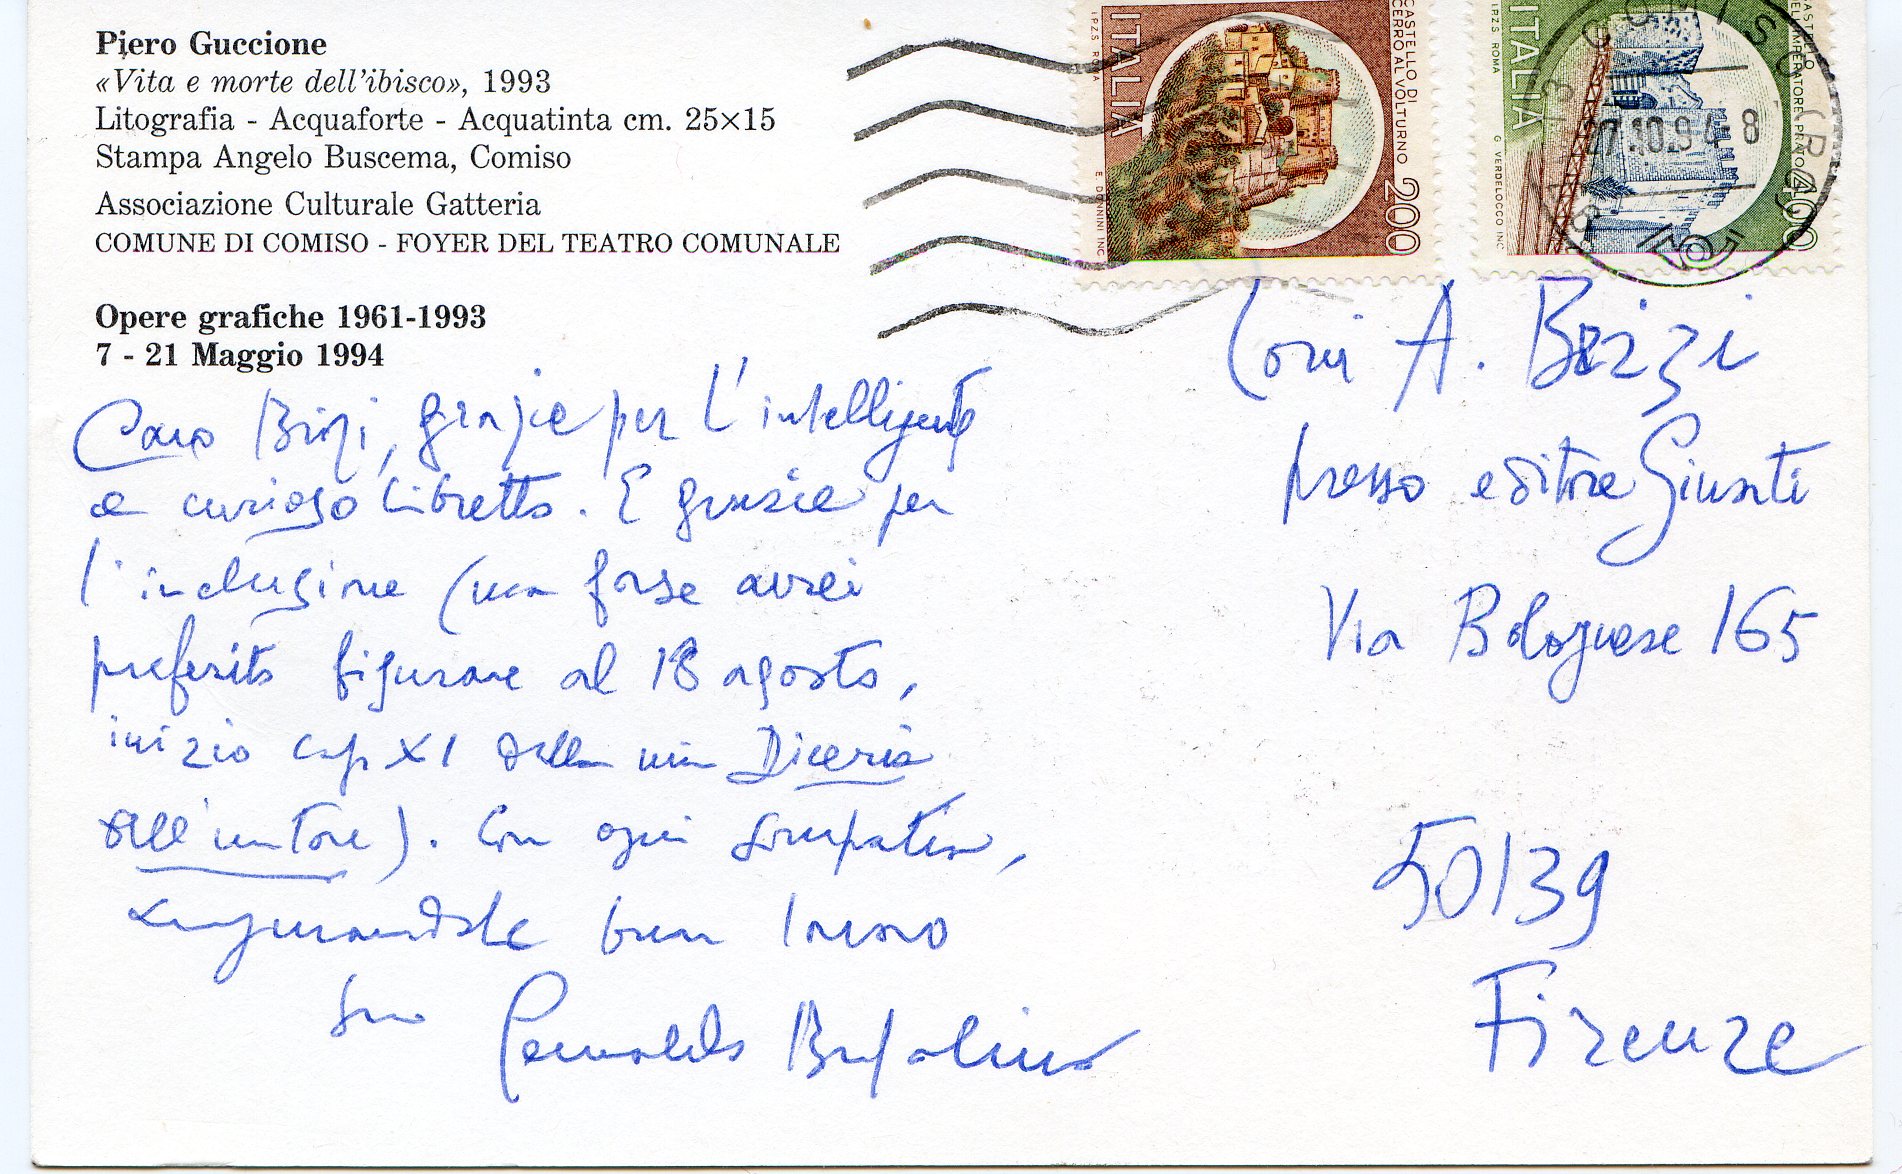 Piero Guccione
«Vita e morte dell'ibisco», 1993
Litografia - Acquaforte - Acquatinta cm. 25×15
Stampa Angelo Buscema, Comiso
Associazione Culturale Gatteria
COMUNE DI COMISO - FOYER DEL TEATRO COMUNALE
Opere grafiche 1961-1993
7 - 21 Maggio 1994
Caro Brizi, grazie per l'intelligente
e curioso libretto. E grazie per
l'inclusione (ma forse avrei
preferito figurare al 18 agosto,
inizio cap XI della mia Diceria
dell'untore). Con ogni simpatia,
augurandole buon lavoro
Suo Gesualdo Bufalino
ITALIA
I.P.Z.S. ROMA
CASTELLO DI
CERRO AL VOLTURNO 200
E. DONNINI INC.
ITALIA
I.P.Z.S. ROMA
CASTELLO
DELL'IMPERATORE PRATO 400
G. VERDELOCCO INC.
COMISO (RG)
27.10.94-8
A. Brizzi
presso editore Giunti
Via Bolognese 165
50139
Firenze